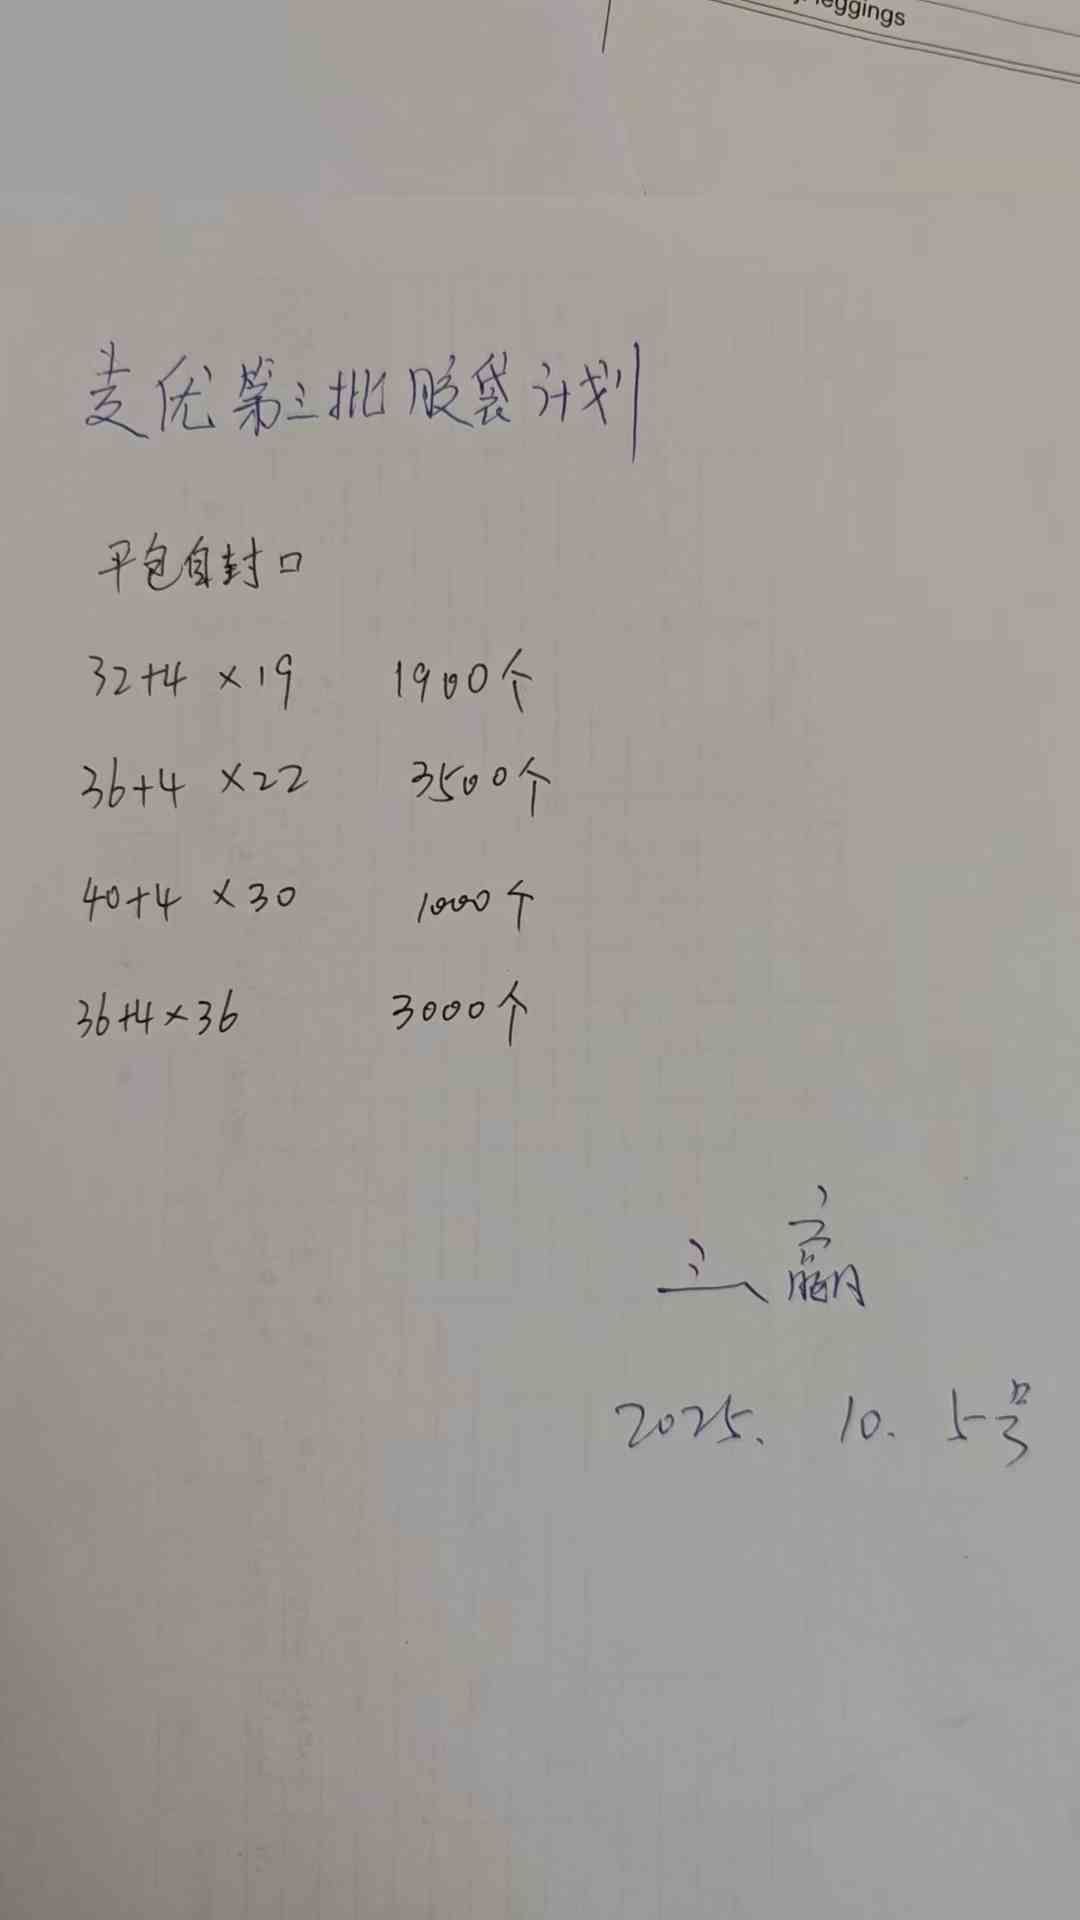 leggings
麦优第三批胶袋计划
平包自封口
32+4 ×19 1900个
36+4 ×22 3500个
40+4 ×30 1000个
36+4×36 3000个
赢
2025. 10. 5号